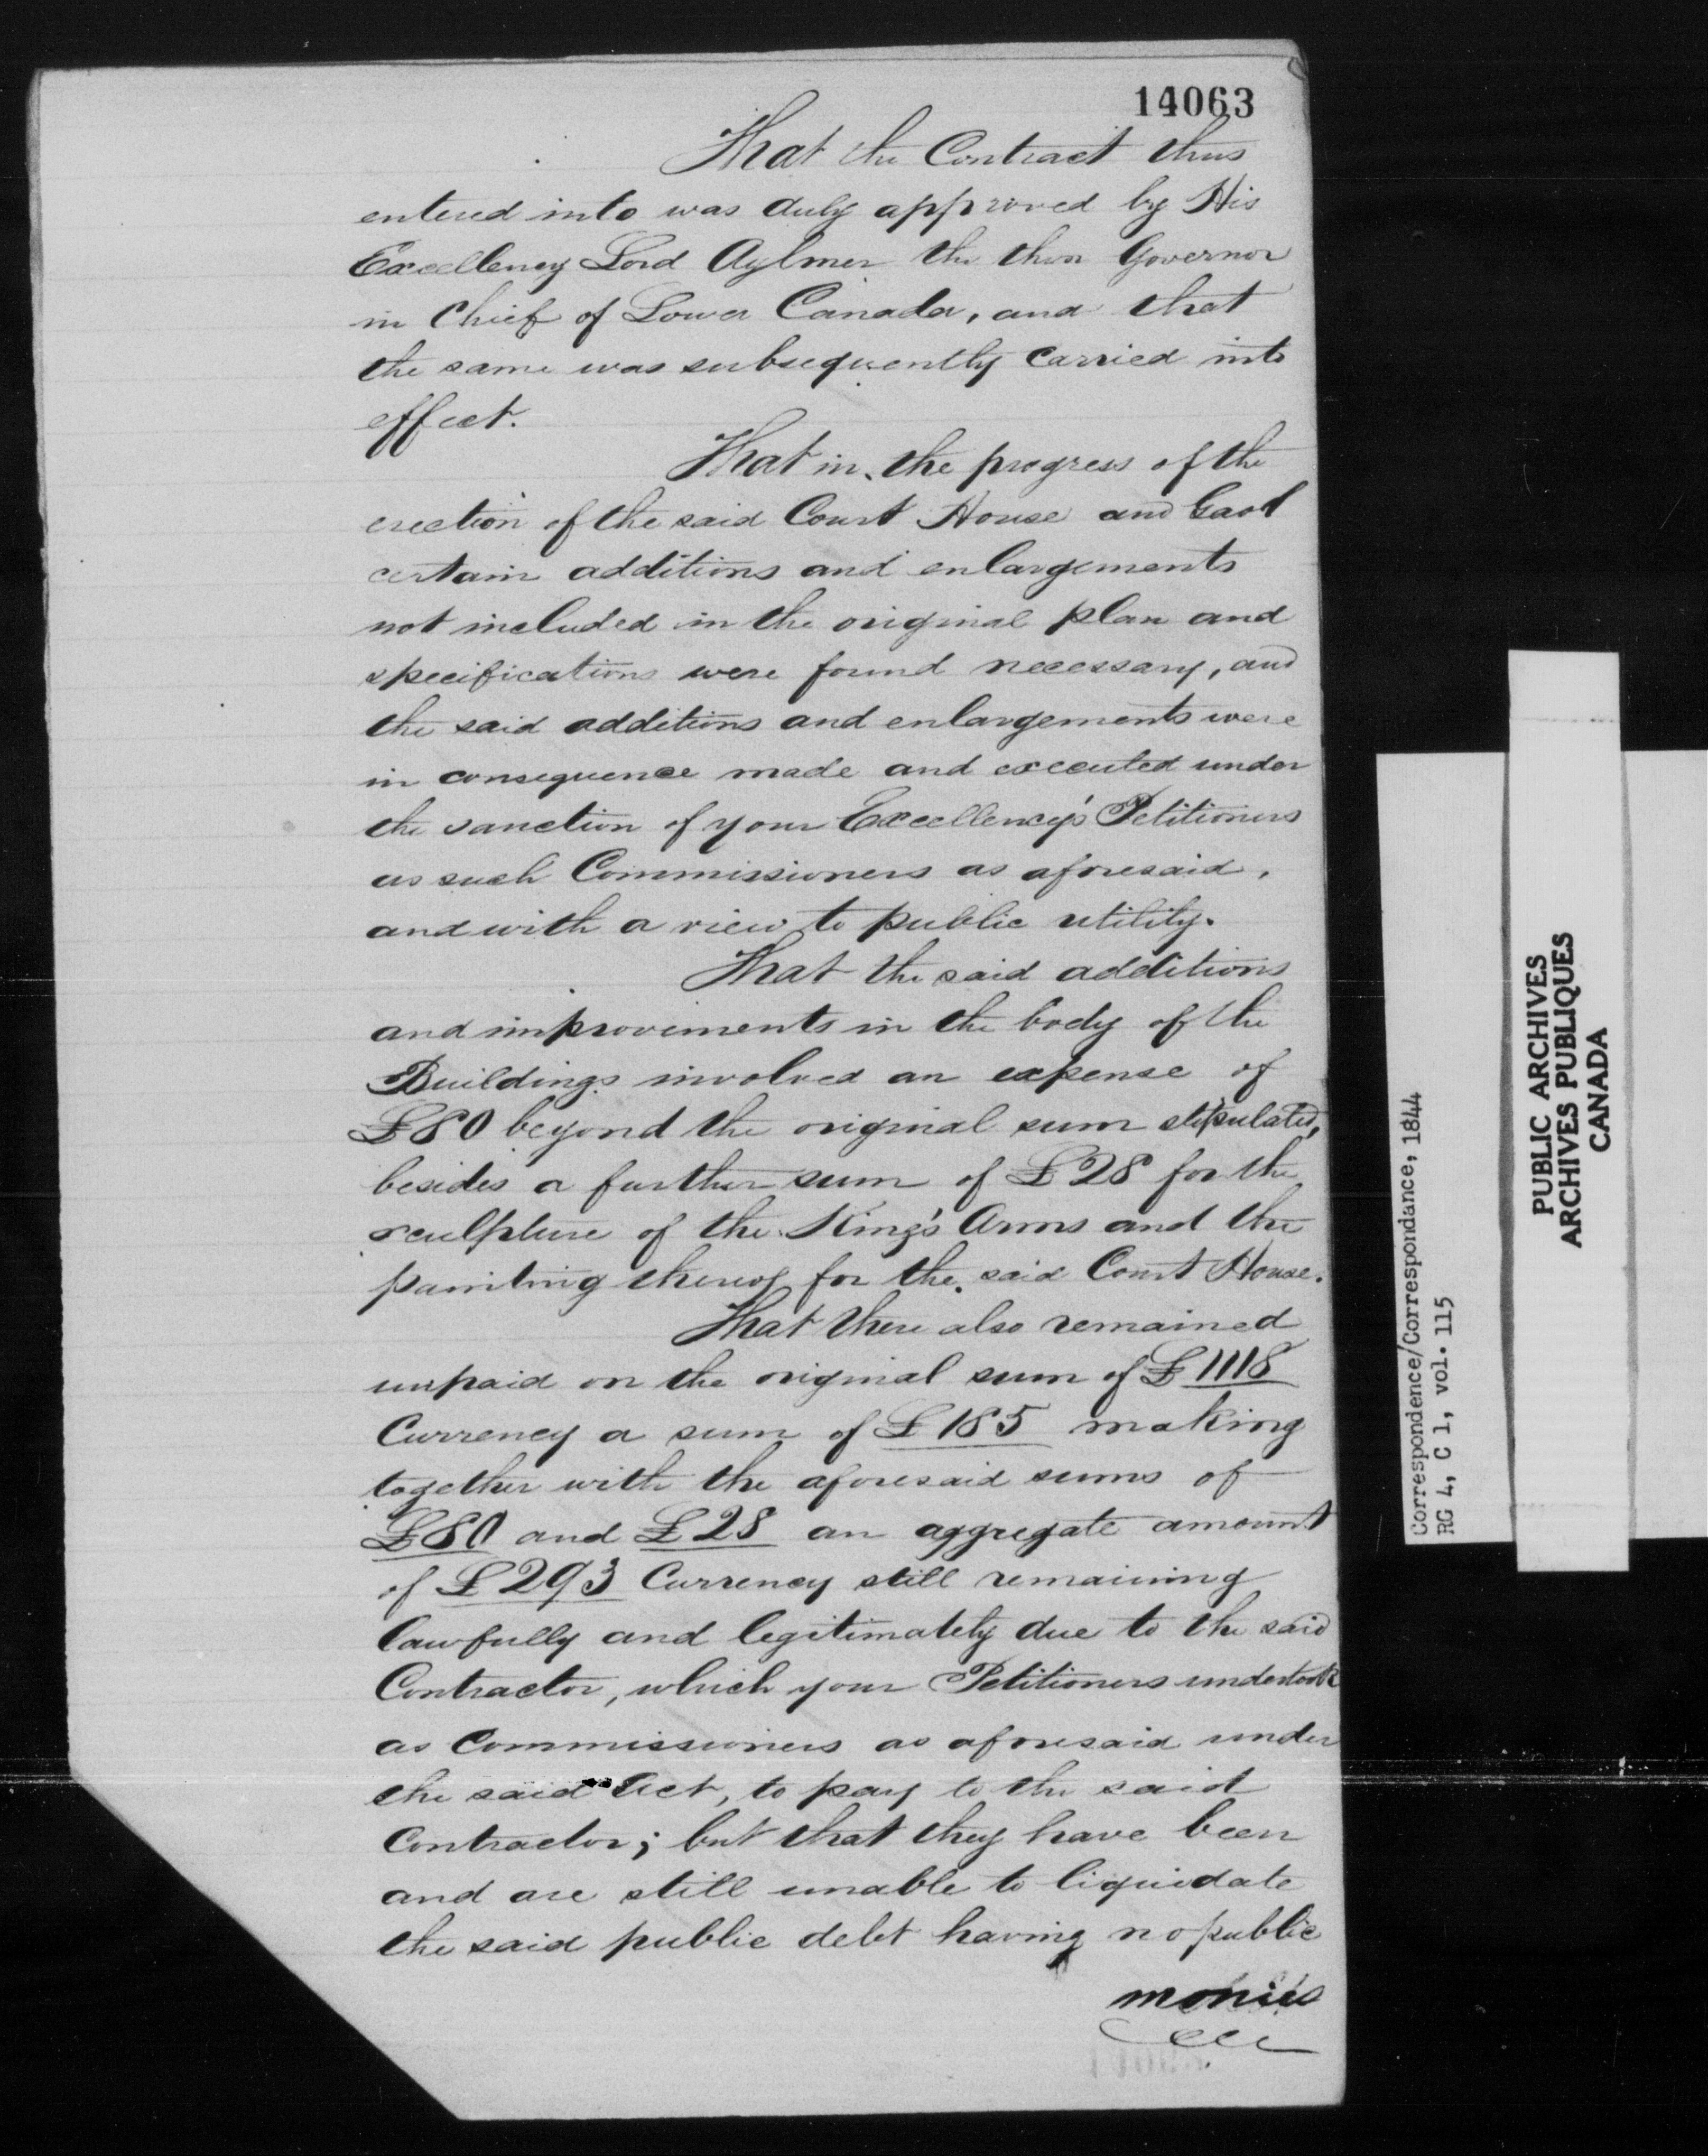 14063
That the Contract thus
entered into was duly approved by His
Excellency Lord Aylmer the then Governor
in Chief of Lower Canada, and that
the same was subsequently carried into
effect.
That in the progress of the
erection of the said Court House and Gaol
certain additions and enlargements
not included in the original plan and
specifications were found necessary, and
the said additions and enlargements were
in consequence made and executed under
the sanction of your Excellency's Petitioners
as such Commissioners as aforesaid,
and with a view to public utility.
That the said additions
and improvements in the body of the
Buildings involved an expense of
£80 beyond the original sum stipulated,
besides a further sum of £28 for the
sculpture of the King's Arms and the
painting thereof for the said Court House.
That there also remained
unpaid on the original sum of £1118
Currency a sum of £185 making
together with the aforesaid sums of
£80 and £28 an aggregate amount
of £293 Currency still remaining
lawfully and legitimately due to the said
Contractor, which your Petitioners undertook
as Commissioners as aforesaid under
the said Act, to pay to the said
Contractor; but that they have been
and are still unable to liquidate
the said public debt having no public
monies
Correspondence/Correspondance, 1844
RG 4, C 1, vol. 115
PUBLIC ARCHIVES
ARCHIVES PUBLIQUES
CANADA